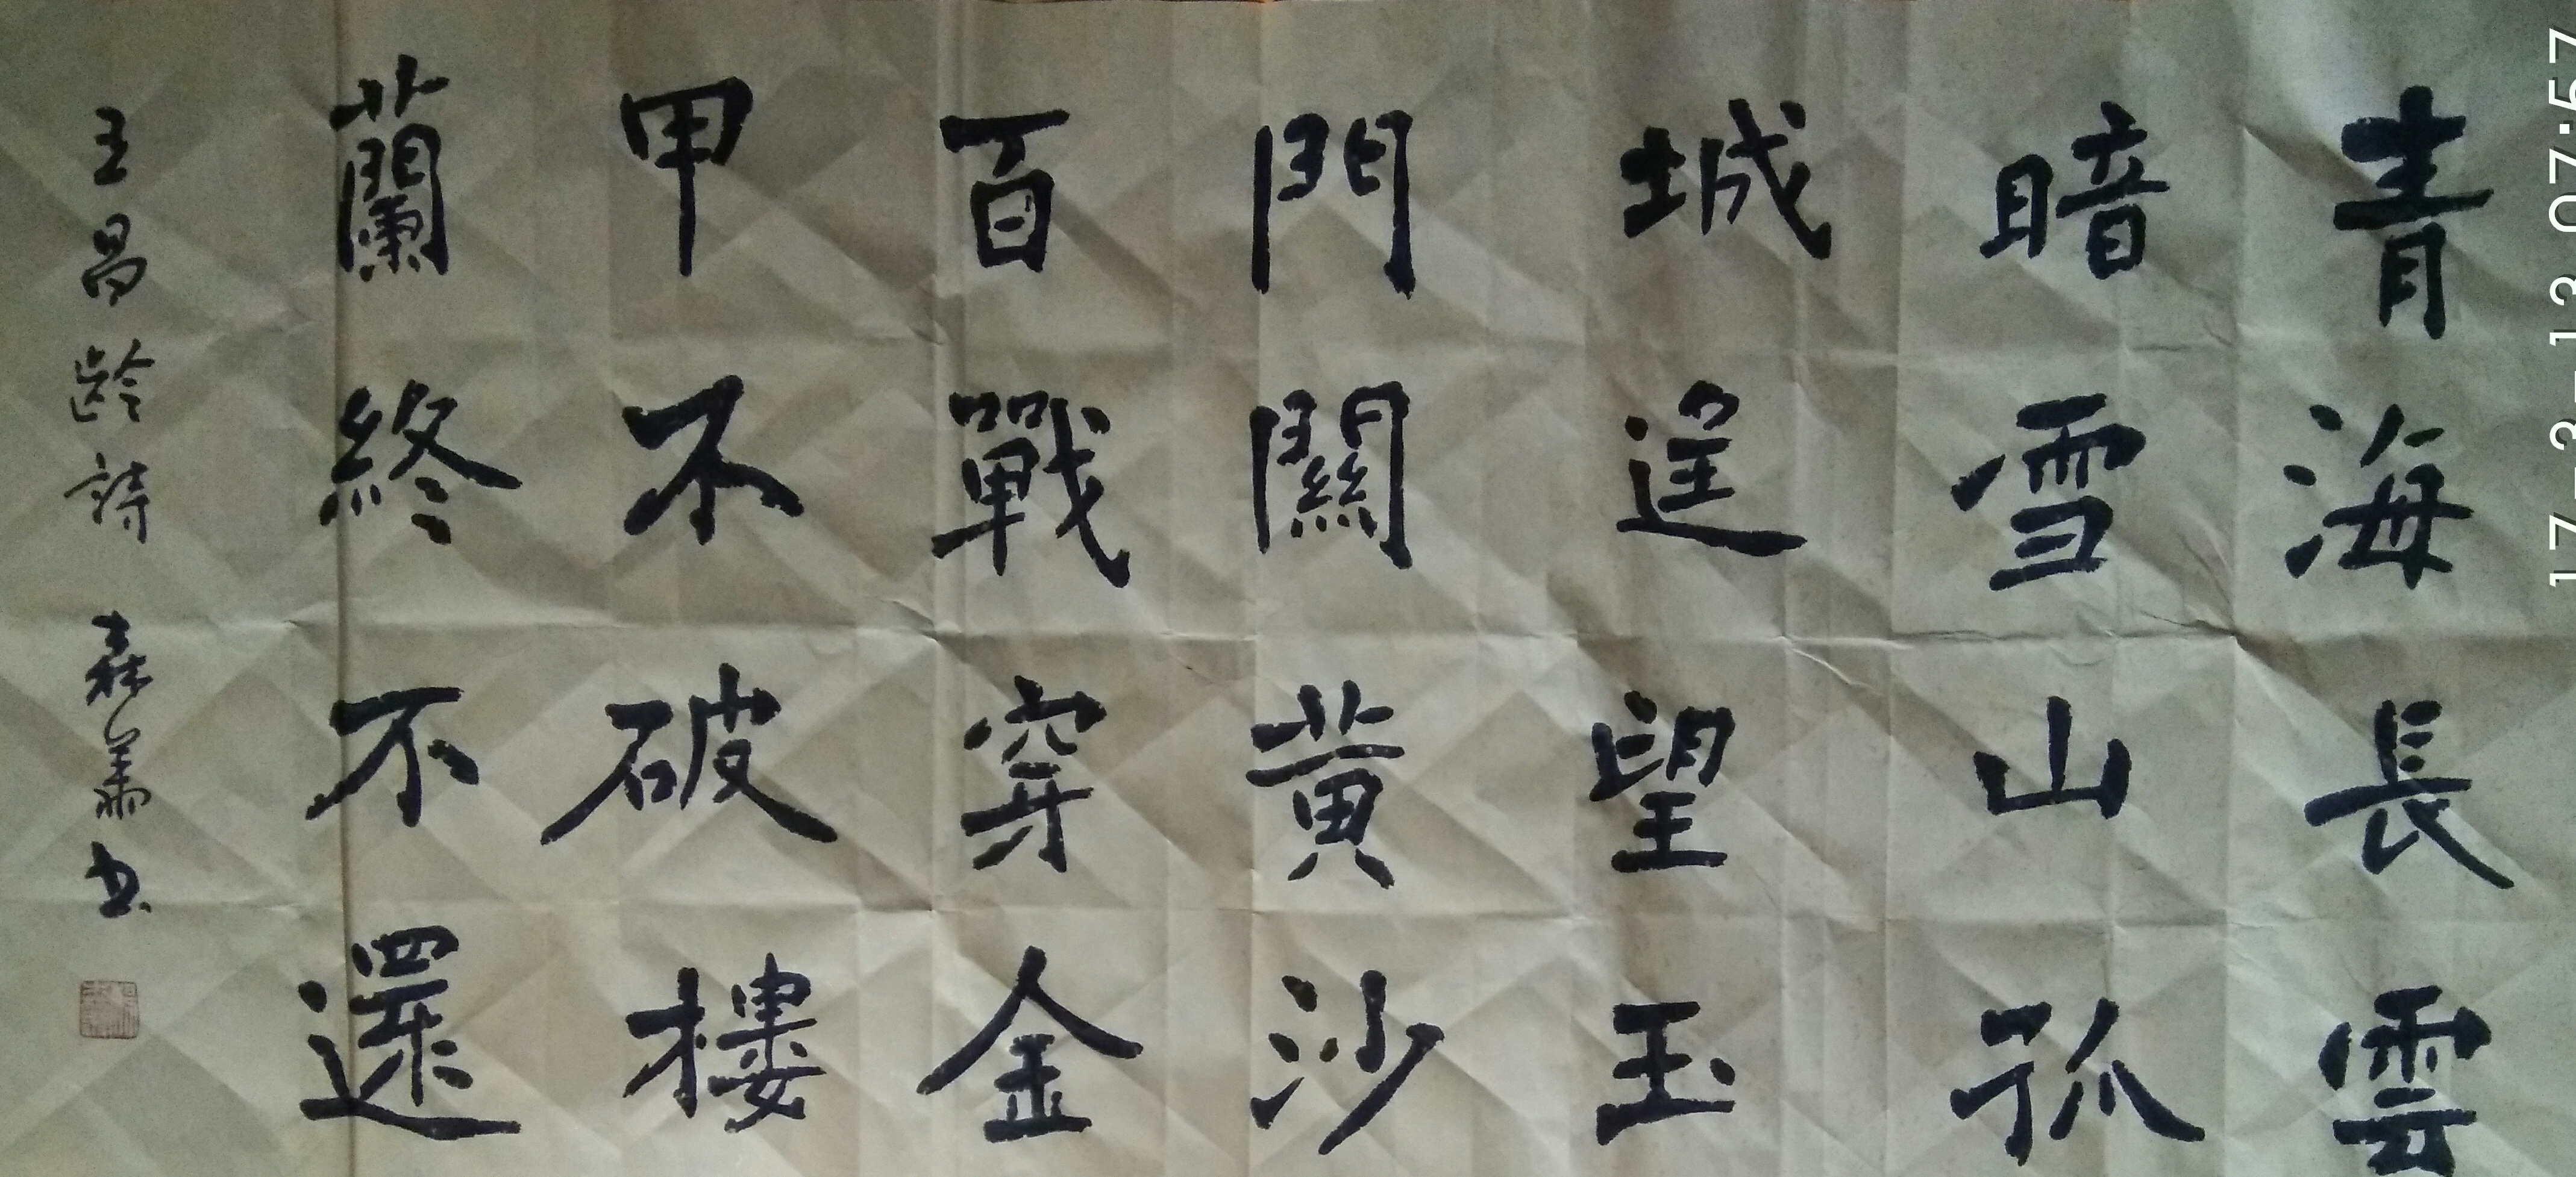 青海長雲
暗雪山孤
城遥望玉
門關黄沙
百戰穿金
甲不破樓
蘭終不還
王昌龄詩 森業书
17-3-13 07:57